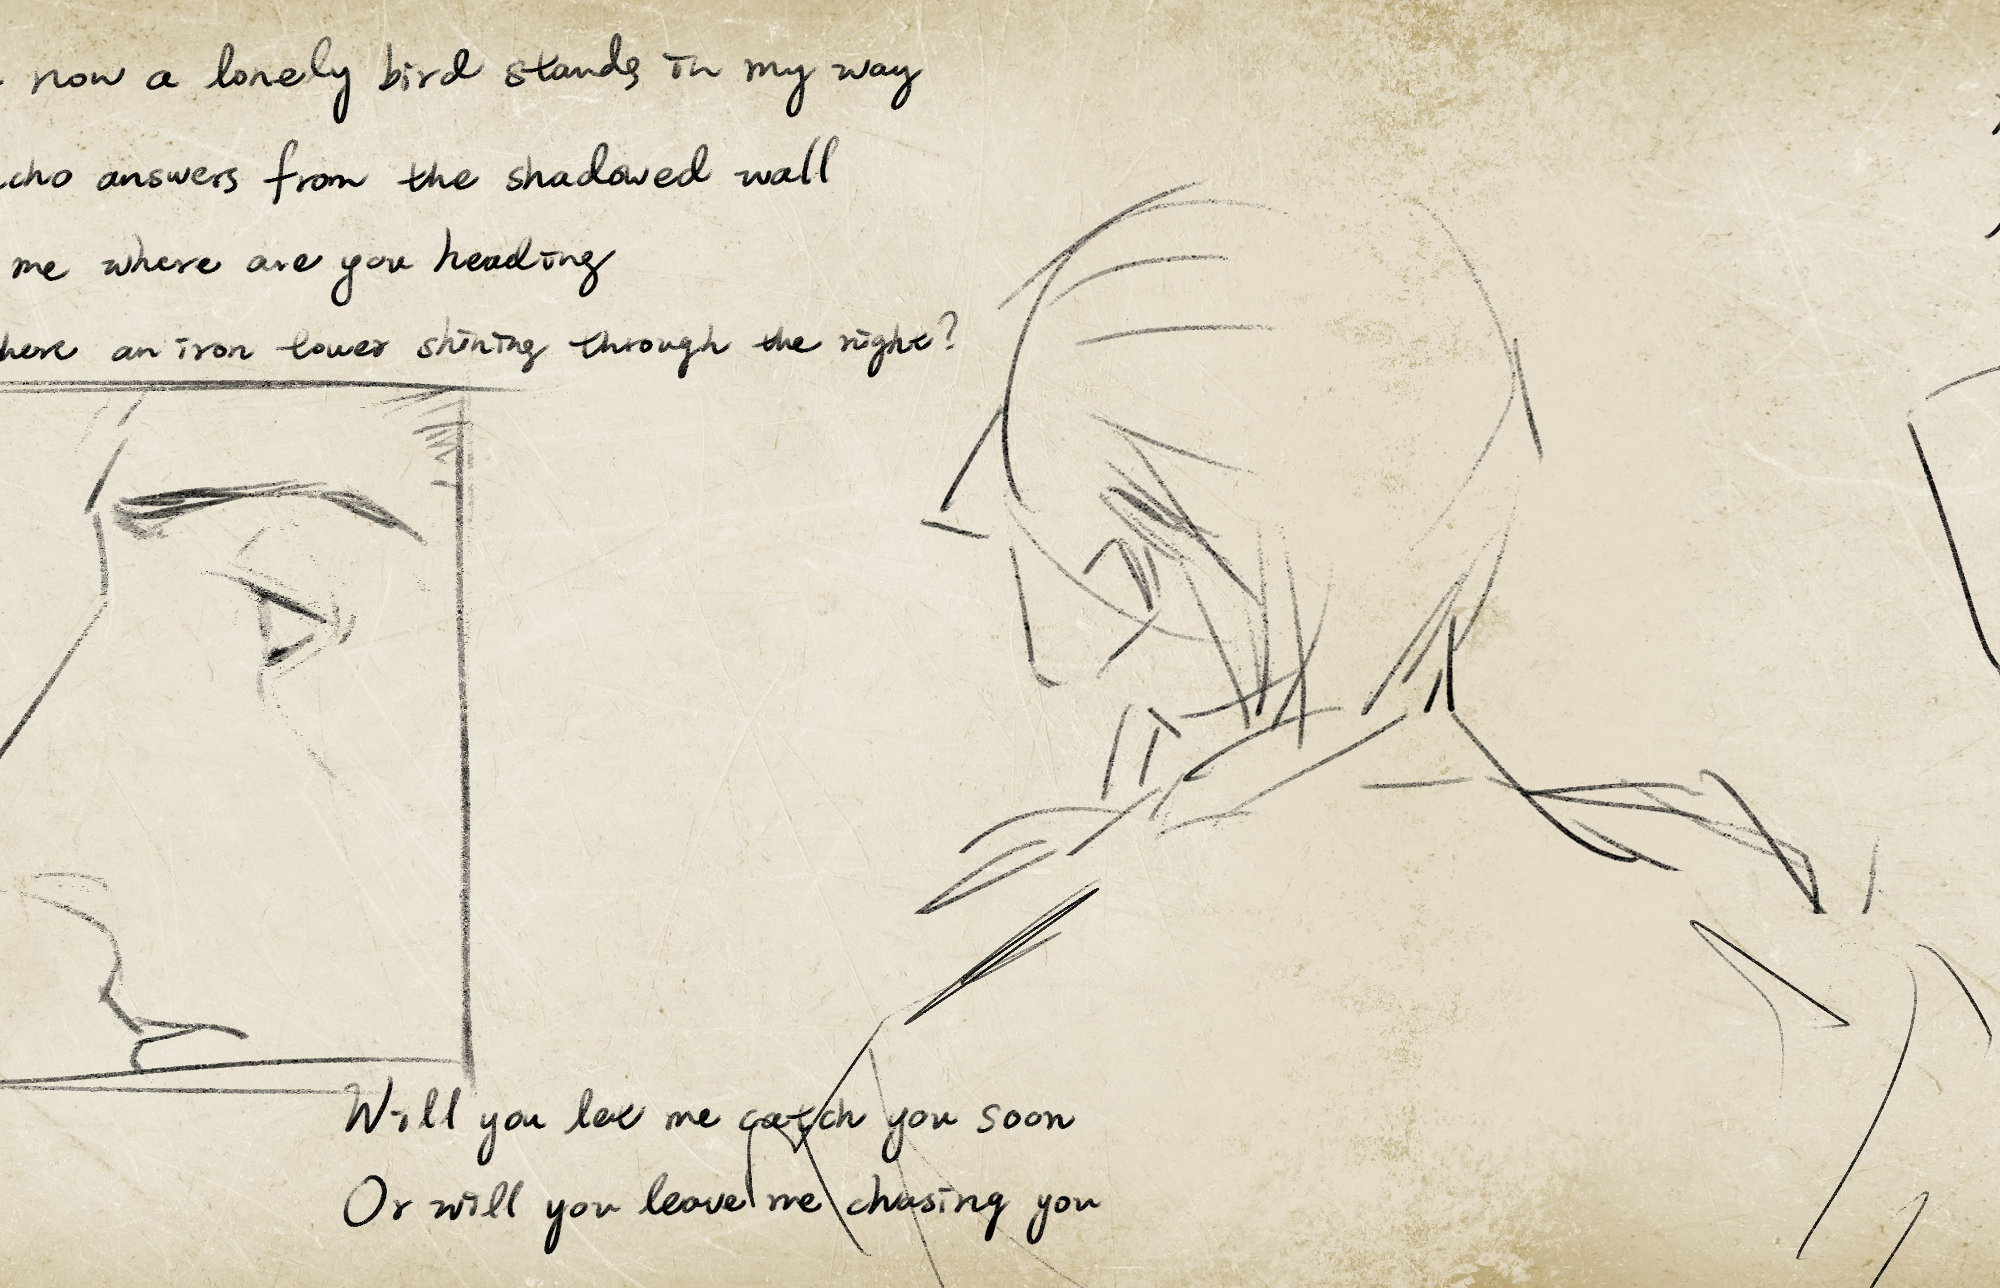 now a lonely bird stands in my way
cho answers from the shadowed wall
me where are you heading
here an iron tower shining through the night?
Will you let me catch you soon
Or will you leave me chasing you